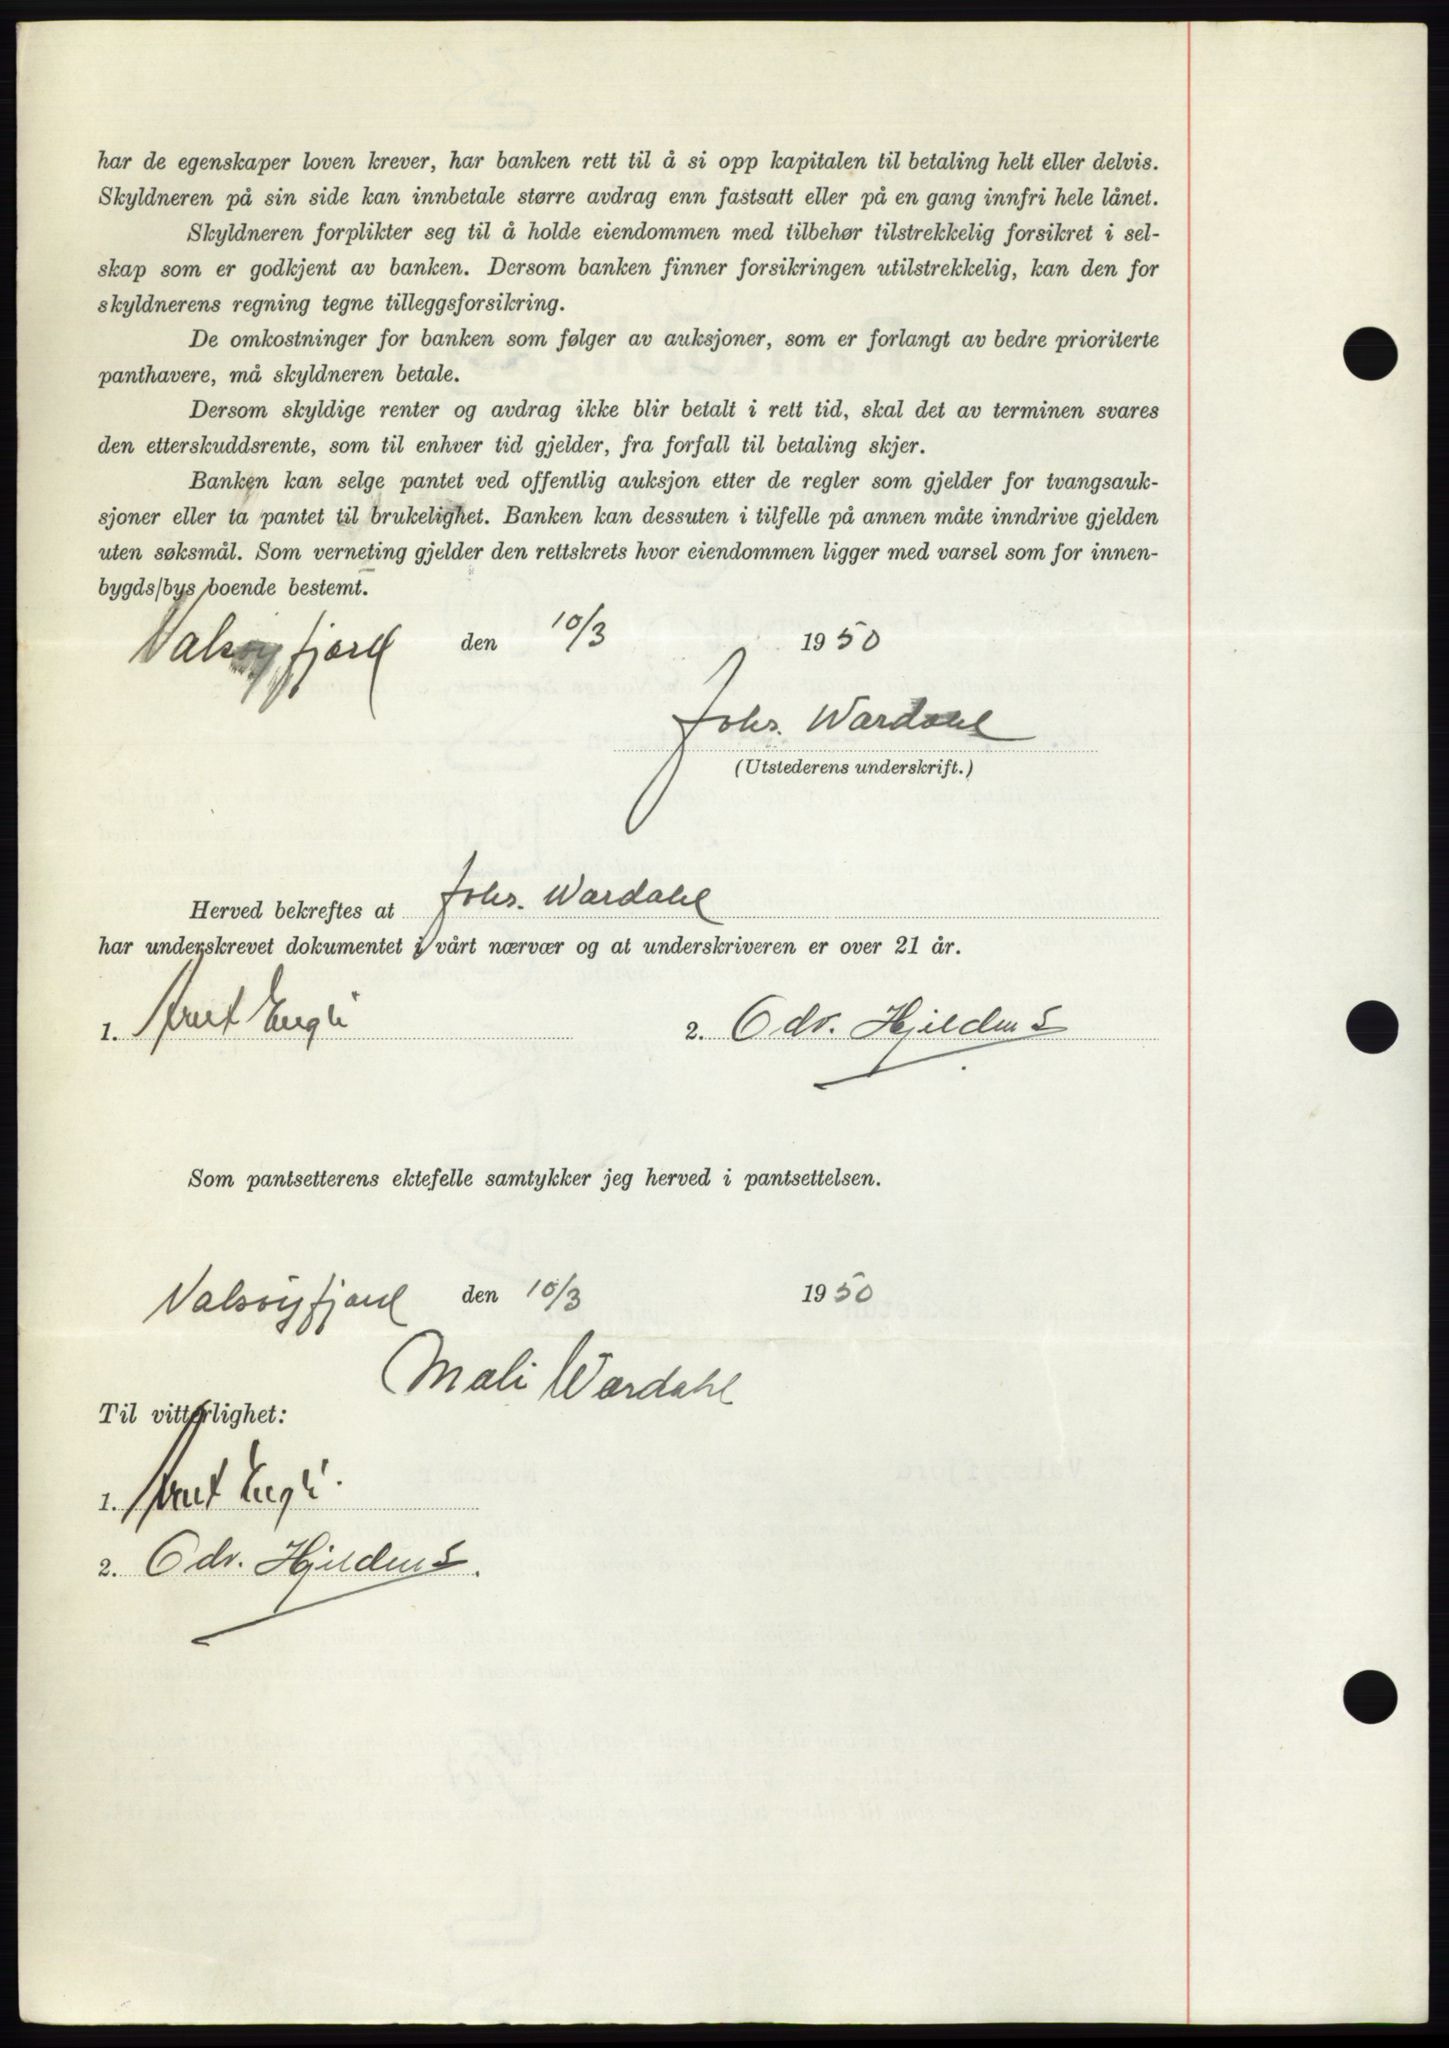 har de egenskaper loven krever, har banken rett til å si opp kapitalen til betaling helt eller delvis.
Skyldneren på sin side kan innbetale større avdrag enn fastsatt eller på en gang innfri hele lånet.
Skyldneren forplikter seg til å holde eiendommen med tilbehør tilstrekkelig forsikret i sel-
skap som er godkjent av banken. Dersom banken finner forsikringen utilstrekkelig, kan den for
skyldnerens regning tegne tilleggsforsikring.
De omkostninger for banken som følger av auksjoner, som er forlangt av bedre prioriterte
panthavere, må skyldneren betale.
Dersom skyldige renter og avdrag ikke blir betalt i rett tid, skal det av terminen svares
den etterskuddsrente, som til enhver tid gjelder, fra forfall til betaling skjer.
Banken kan selge pantet ved offentlig auksjon etter de regler som gjelder for tvangsauk-
sjoner eller ta pantet til brukelighet. Banken kan dessuten i tilfelle på annen måte inndrive gjelden
uten søksmål. Som verneting gjelder den rettskrets hvor eiendommen ligger med varsel som for innen-
bygds/bys boende bestemt.
Valsøyfjord den 10/3 1950
Johs. Wærdahl
(Utstederens underskrift.)
Herved bekreftes at Johs. Wærdahl
har underskrevet dokumentet i vårt nærvær og at underskriveren er over 21 år.
1. Arnt Engli 2. Odv. Hjeldnes
Som pantsetterens ektefelle samtykker jeg herved i pantsettelsen.
Valsøyfjord den 10/3 1950
Mali Wærdahl
Til vitterlighet:
1. Arnt Engli.
2. Odv. Hjeldnes.